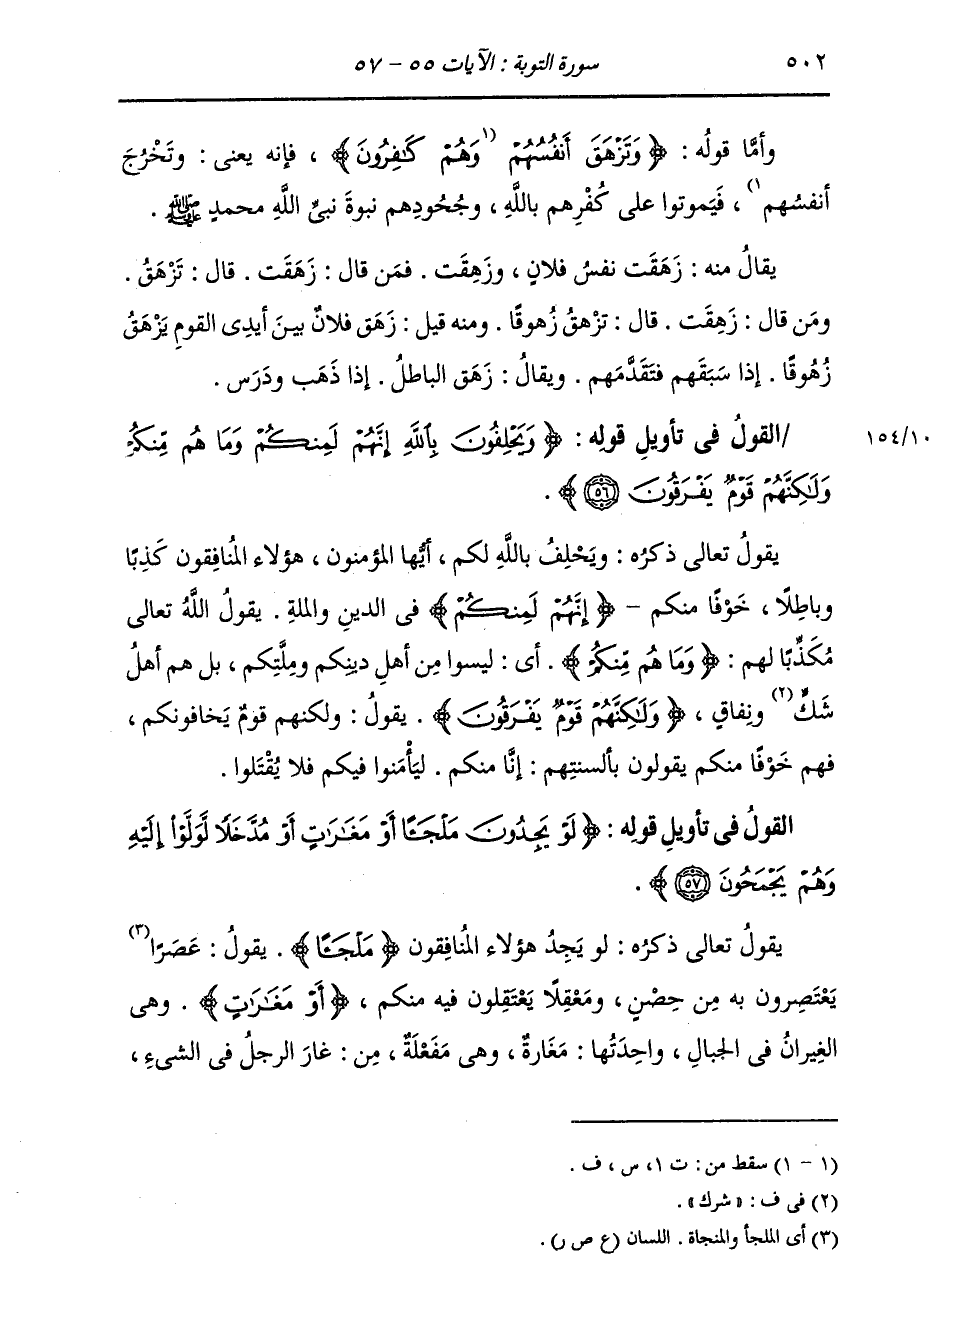 ٥٠٢ سورة التوبة : الآيات ٥٥ - ٥٧
وأمَّا قولُه : ﴿ وَتَزْهَقَ أَنفُسُهُمْ (١وَهُمْ كَٰفِرُونَ ﴾ ، فإنه يعنى : وتَخْرُجَ
أنفسُهم١) ، فَيَموتوا على كُفْرِهم باللَّهِ ، وجُحودِهم نبوةَ نبىِّ اللَّهِ محمدٍ ﷺ .
يقالُ منه : زَهَقَت نفسُ فلانٍ ، وزَهِقَت . فمَن قال : زَهَقَت . قال : تَزْهَقُ .
ومَن قال : زَهِقَت . قال : تزهقُ زُهوقًا . ومنه قيل : زَهَق فلانٌ بينَ أيدِى القومِ يَزْهَقُ
زُهُوقًا . إذا سَبَقَهم فتَقَدَّمَهم . ويقالُ : زَهَق الباطلُ . إذا ذَهَب ودَرَس .
١٥٤/١٠ /القولُ فى تأويلِ قولِه : ﴿ وَيَحْلِفُونَ بِٱللَّهِ إِنَّهُمْ لَمِنكُمْ وَمَا هُم مِّنكُمْ
وَلَٰكِنَّهُمْ قَوْمٌ يَفْرَقُونَ ٥٦ ﴾ .
يقولُ تعالى ذكرُه : ويَحْلِفُ باللَّهِ لكم ، أيُّها المؤمنون ، هؤلاء المُنافِقون كَذِبًا
وباطِلًا ، خَوْفًا منكم - ﴿ إِنَّهُمْ لَمِنكُمْ ﴾ فى الدينِ والملةِ . يقولُ اللَّهُ تعالى
مُكَذِّبًا لهم : ﴿ وَمَا هُم مِّنكُمْ ﴾ . أى : ليسوا مِن أهلِ دينِكم ومِلَّتِكم ، بل هم أهلُ
شَكٍّ(٢) ونِفاقٍ ، ﴿ وَلَٰكِنَّهُمْ قَوْمٌ يَفْرَقُونَ ﴾ . يقولُ : ولكنهم قومٌ يَخافونكم ،
فهم خَوْفًا منكم يقولون بألسنتِهم : إنَّا منكم . ليَأْمَنوا فيكم فلا يُقْتَلوا .
القولُ فى تأويلِ قولِه : ﴿ لَوْ يَجِدُونَ مَلْجَـًٔا أَوْ مَغَٰرَٰتٍ أَوْ مُدَّخَلًا لَّوَلَّوْا۟ إِلَيْهِ
وَهُمْ يَجْمَحُونَ ٥٧ ﴾ .
يقولُ تعالى ذكرُه : لو يَجِدُ هؤلاء المُنافِقون ﴿ مَلْجَـًٔا ﴾ . يقولُ : عَصَرًا(٣)
يَعْتَصِرون به مِن حِصْنٍ ، ومَعْقِلًا يَعْتَقِلون فيه منكم ، ﴿ أَوْ مَغَٰرَٰتٍ ﴾ . وهى
الغِيرانُ فى الجبالِ ، واحِدَتُها : مَغَارةٌ ، وهى مَفْعَلَةٌ ، مِن : غارَ الرجلُ فى الشىءِ ،
(١ - ١) سقط من : ت ١، س ، ف .
(٢) فى ف : « شرك » .
(٣) أى الملجأ والمنجاة . اللسان (ع ص ر) .